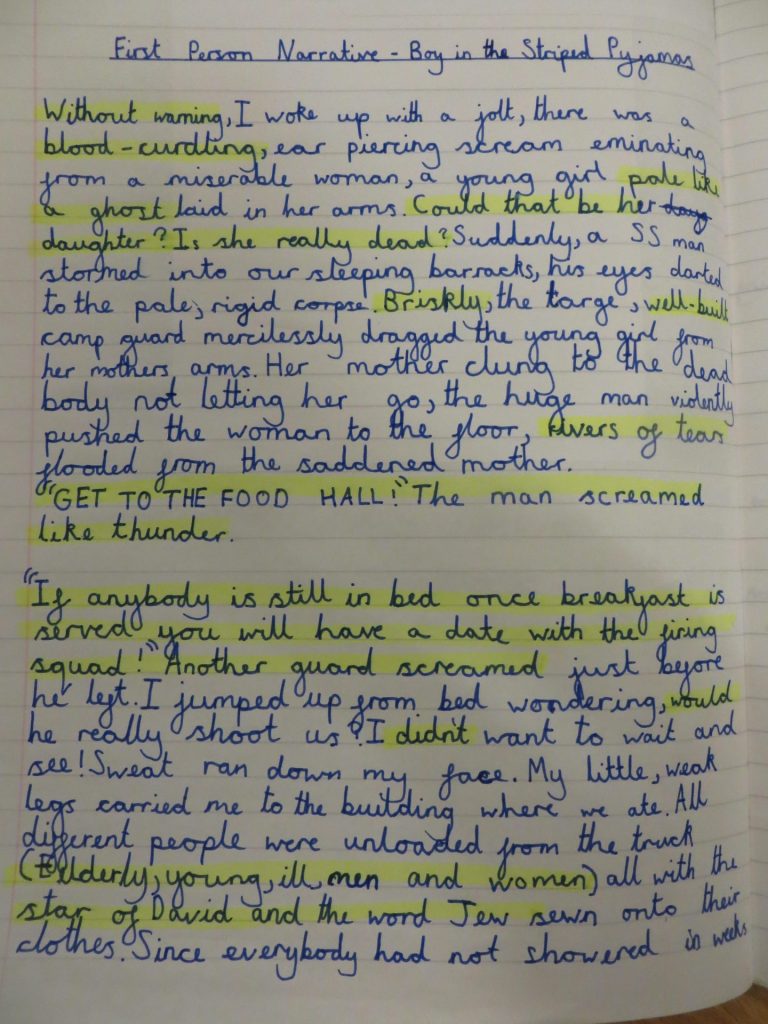 First Person Narrative - Boy in the Striped Pyjamas
Without warning, I woke up with a jolt, there was a
blood-curdling, ear piercing scream eminating
from a miserable woman, a young girl pale like
a ghost laid in her arms. Could that be her
daughter? Is she really dead? Suddenly, a SS man
stormed into our sleeping barracks, his eyes darted
to the pale, rigid corpse. Briskly, the large, well-built
camp guard mercilessly dragged the young girl from
her mothers arms. Her mother clung to the dead
body not letting her go, the huge man violently
pushed the woman to the floor, rivers of tears
flooded from the saddened mother.
"GET TO THE FOOD HALL!" The man screamed
like thunder.
"If anybody is still in bed once breakfast is
served you will have a date with the firing
squad!" Another guard screamed just before
he left. I jumped up from bed wondering, would
he really shoot us? I didn't want to wait and
see! Sweat ran down my face. My little, weak
legs carried me to the building where we ate. All
different people were unloaded from the truck
(Elderly, young, ill, men and women) all with the
star of David and the word Jew sewn onto their
clothes. Since everybody had not showered in weeks